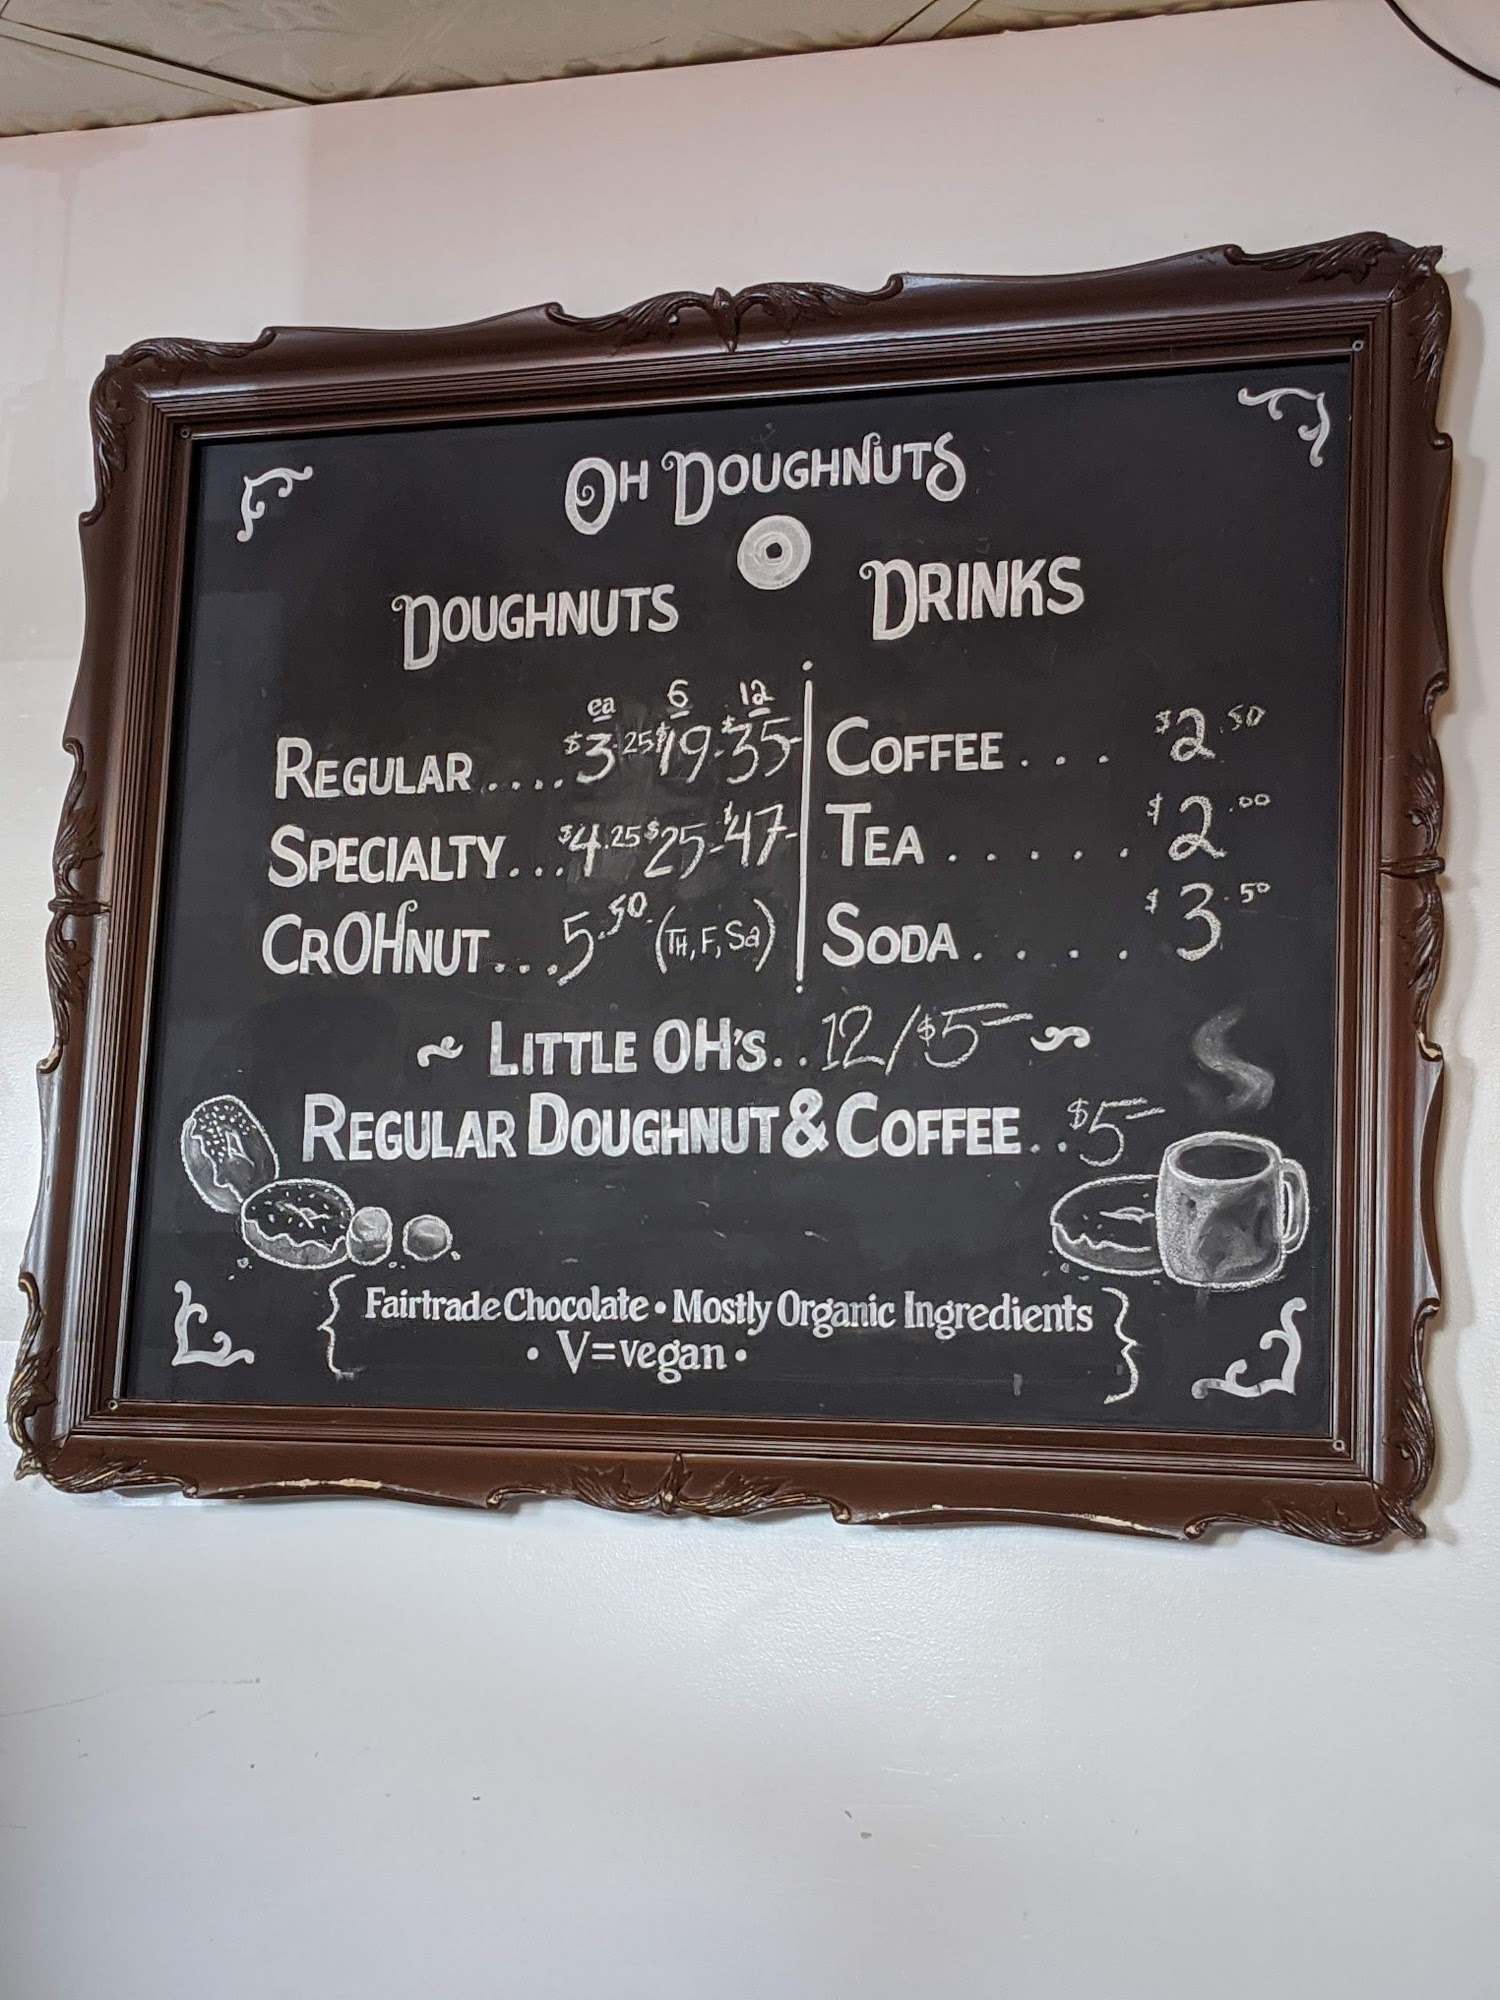 OH DOUGHNUTS
DOUGHNUTS
ea 6 12
REGULAR....$3.25 $19.- $35-
SPECIALTY...$4.25 $25- $47-
CROHNUT...5.50 (TH, F, Sa)
DRINKS
COFFEE... $2.50
TEA..... $2.00
SODA..... $3.50
~ LITTLE OH'S..12/$5- ~
REGULAR DOUGHNUT & COFFEE..$5-
{ Fairtrade Chocolate • Mostly Organic Ingredients }
• V=vegan •